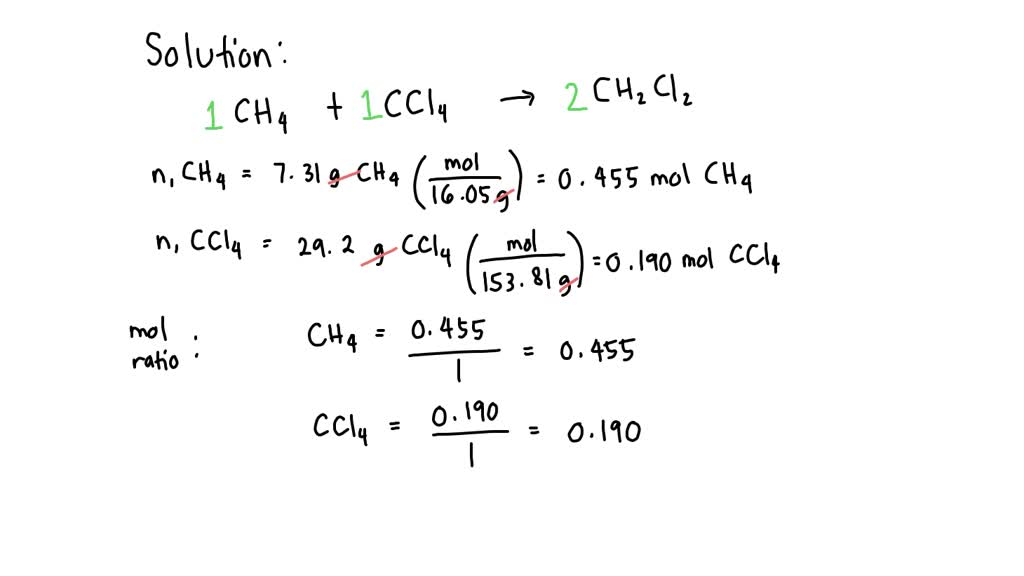 Solution:
1 CH₄ + 1 CCl₄ → 2 CH₂Cl₂
n, CH₄ = 7.31 g CH₄ (mol / 16.05 g) = 0.455 mol CH₄
n, CCl₄ = 29.2 g CCl₄ (mol / 153.81 g) = 0.190 mol CCl₄
mol ratio :
CH₄ = 0.455 / 1 = 0.455
CCl₄ = 0.190 / 1 = 0.190